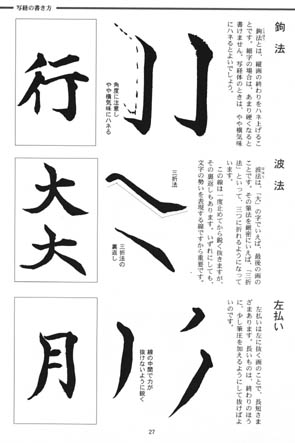 写経の書き方
鉤法
鉤法とは、縦画の終わりをハネ上げるこ
とです。細字の場合は、あまり硬くなると
書けません。写経体のときは、やや横気味
にハネるとよいでしょう。
角度に注意し
やや横気味にハネる
行
波法
波法は、「大」の字でいえば、最後の画の
ことです。その筆法を厳密にいえば、「三折
法」といって、三つに折れるようになって
います。
この線は一度止めてから鋭く抜きますが、
その裏返しもあります。いずれにしても、
文字の勢いを表現する線ですから重要です。
三折法
三折法の
裏返し
大
大
左払い
左払いは左に抜く画のことで、長短さま
ざまあります。長いものは、終わりのほう
に、少し筆圧を加えるようにして抜けばよ
いのです。
線の中間で力が
抜けないように鋭く
月
27